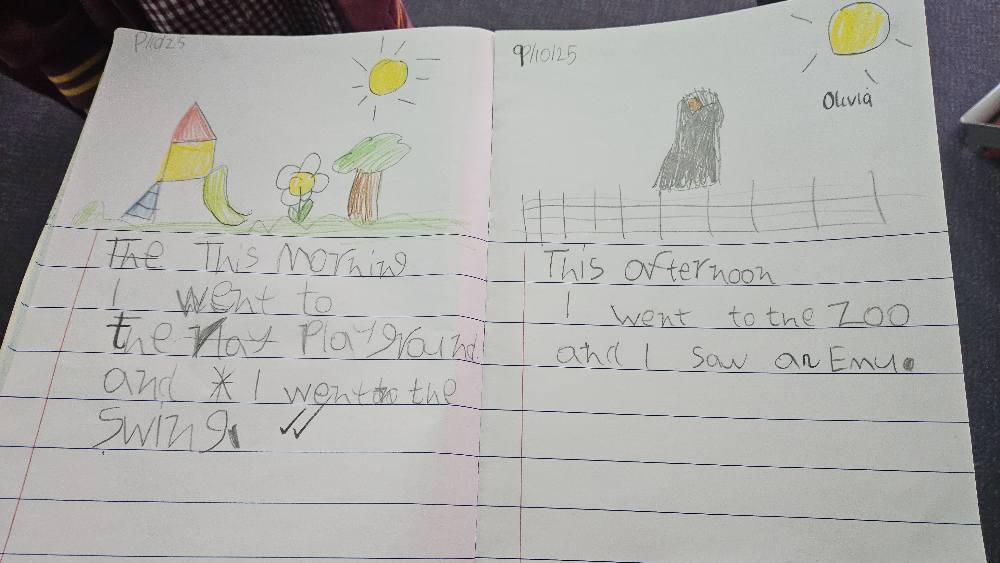 9/10/25
The This Morning
I went to
the Play Playground
and * I went to the
swing.
9/10/25
Olivia
This afternoon
I went to the Zoo
and I saw an Emu.